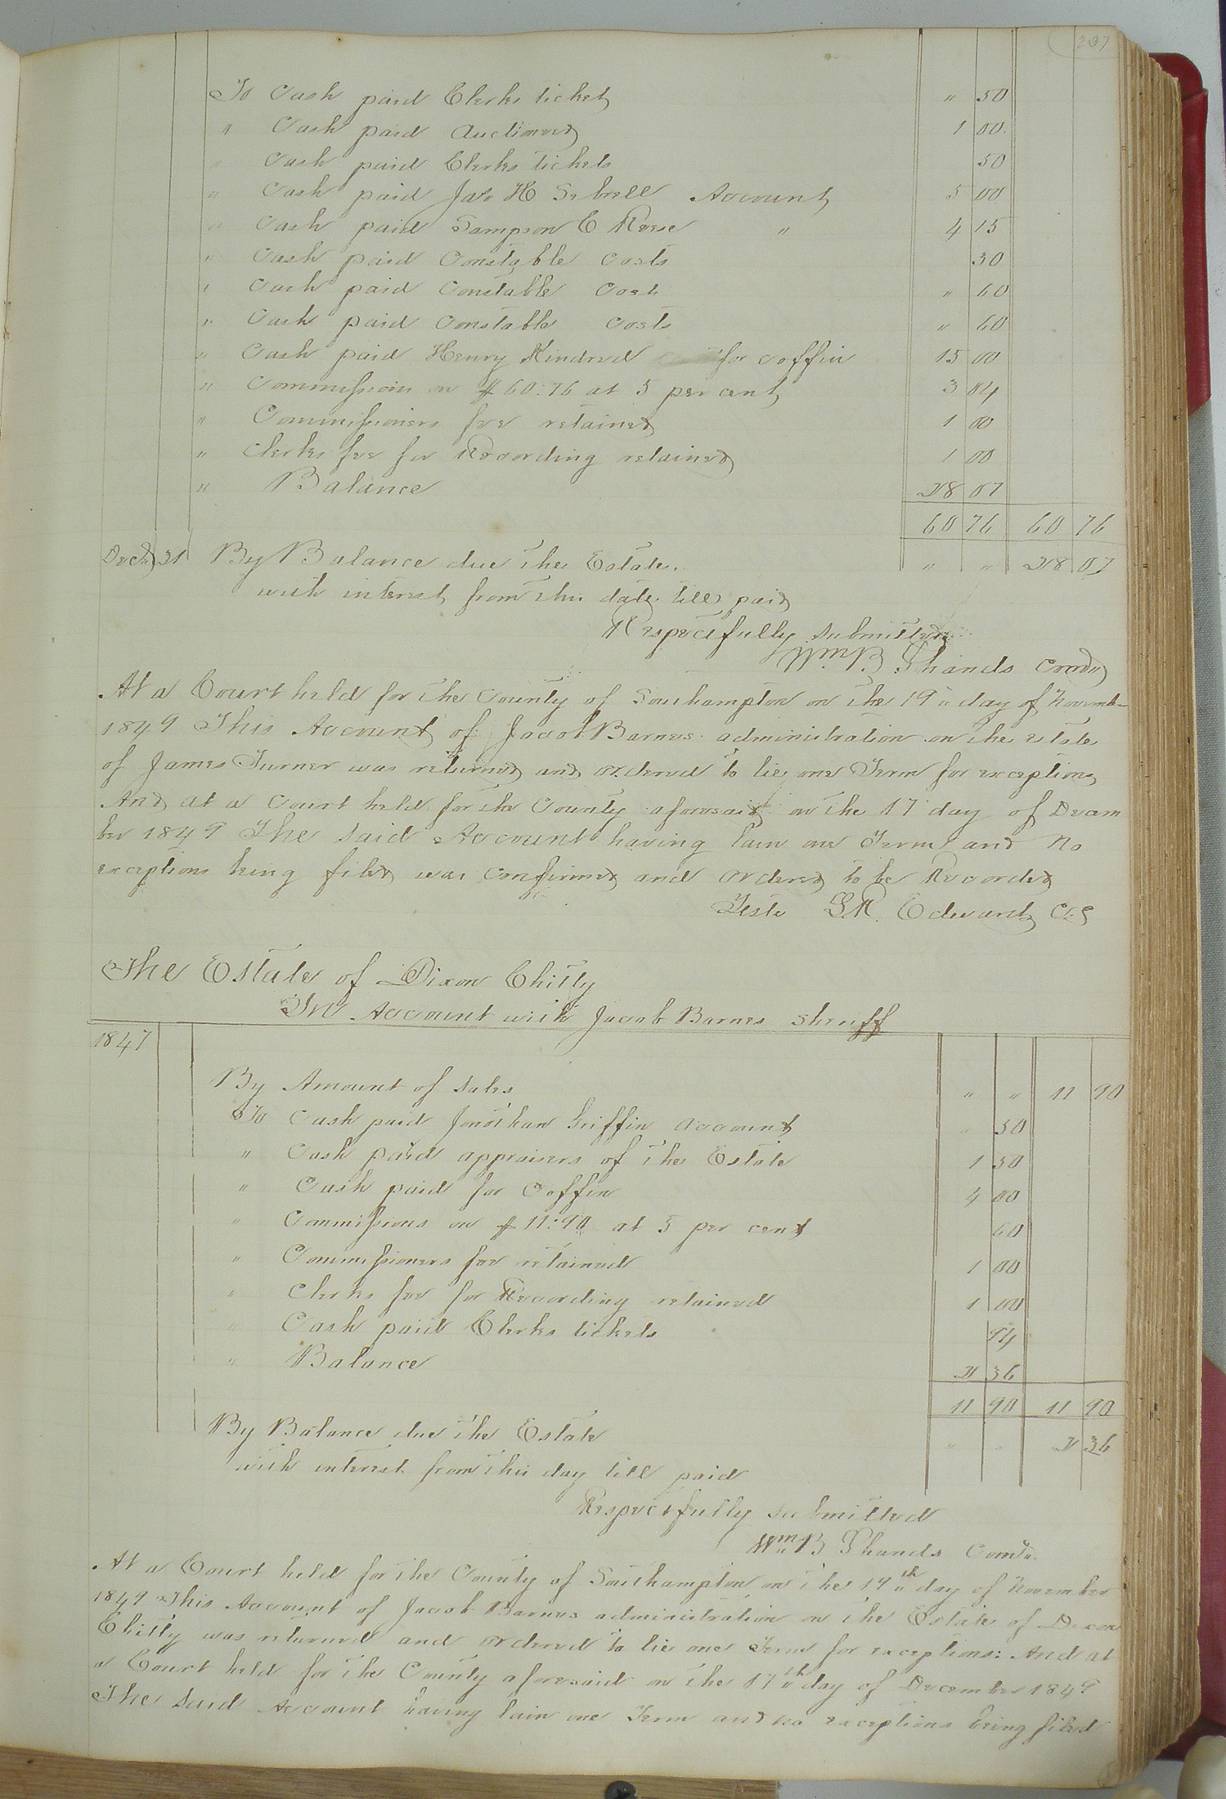 207
To Cash paid Clerks ticket " 50
" Cash paid Auctioneer 1 00
" Cash paid Clerks tickets 50
" Cash paid Jas H Sebrell Account 5 00
" Cash paid Sampson C Reese " 4 15
" Cash paid Constable Costs 30
" Cash paid Constable Cost " 60
" Cash paid Constable Costs " 60
" Cash paid Henry Kindred for coffin 15 00
" Commissions on $60:76 at 5 per cent 3 04
" Commissioners fee retained 1 00
" Clerks fee for Recording retained 1 00
" Balance 28 07
60 76 60 76
Decr 31 By Balance due the Estate " " 28 07
with interest from this date till paid
Respectfully submitted
Wm B Shands Comr
At a Court held for the County of Southampton on the 19th day of Novemb
1849 This Account of Jacob Barnes administration on the estate
of James Turner was returned and ordered to lie one Term for exceptions
And at a Court held for the County aforesaid on the 17 day of Decem
ber 1849 The said Account having lain one Term and no
exceptions being filed was confirmed and ordered to be Recorded
Teste L R Edwards CC
The Estate of Dixon Chitty
In Account with Jacob Barnes Sheriff
1847
By Amount of Sales " " 11 90
To Cash paid Jonathan Griffin Account " 50
" Cash paid appraisers of the Estate 1 50
" Cash paid for Coffin 4 00
" Commissions on $11:90 at 5 per cent 60
" Commissioners fee retained 1 00
" Clerks fee for Recording retained 1 00
" Cash paid Clerks tickets 94
" Balance 2 36
11 90 11 90
By Balance due the Estate " " 2 36
with interest from this day till paid
Respectfully submitted
Wm B Shands Comr
At a Court held for the County of Southampton on the 19th day of November
1849 This Account of Jacob Barnes administration on the Estate of Dixon
Chitty was returned and ordered to lie one Term for exceptions: And at
a Court held for the County aforesaid on the 17th day of December 1849
The said Account having lain one Term and no exceptions being filed